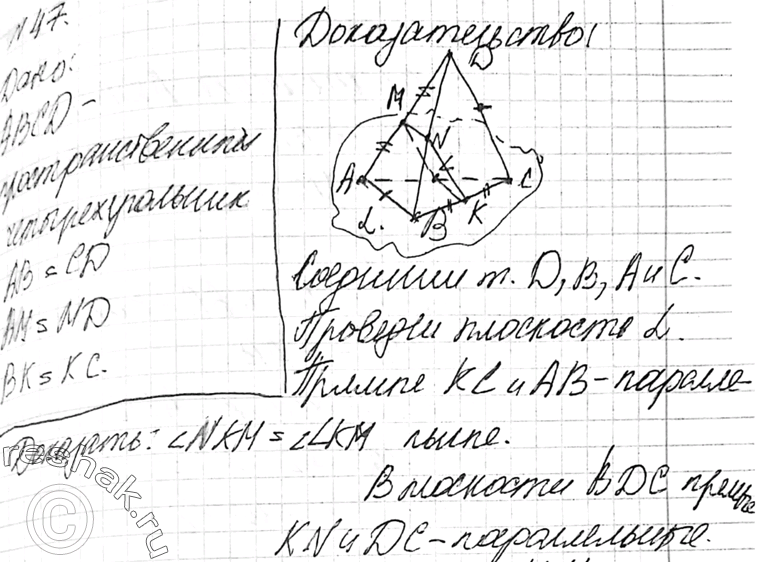 N47.
Дано:
ABCD –
пространственный
четырехугольник
AB = CD
AM = MD
BK = KC.
Доказать: ∠NKM = ∠LKM
Доказательство:
D
M
N
A
C
K
B
L.
Соединим т. D, B, A и C.
Проведем плоскость L.
Прямые KL и AB – паралле
льные.
В плоскости BDC прямые
KN и DC – параллельные.
reshak.ru